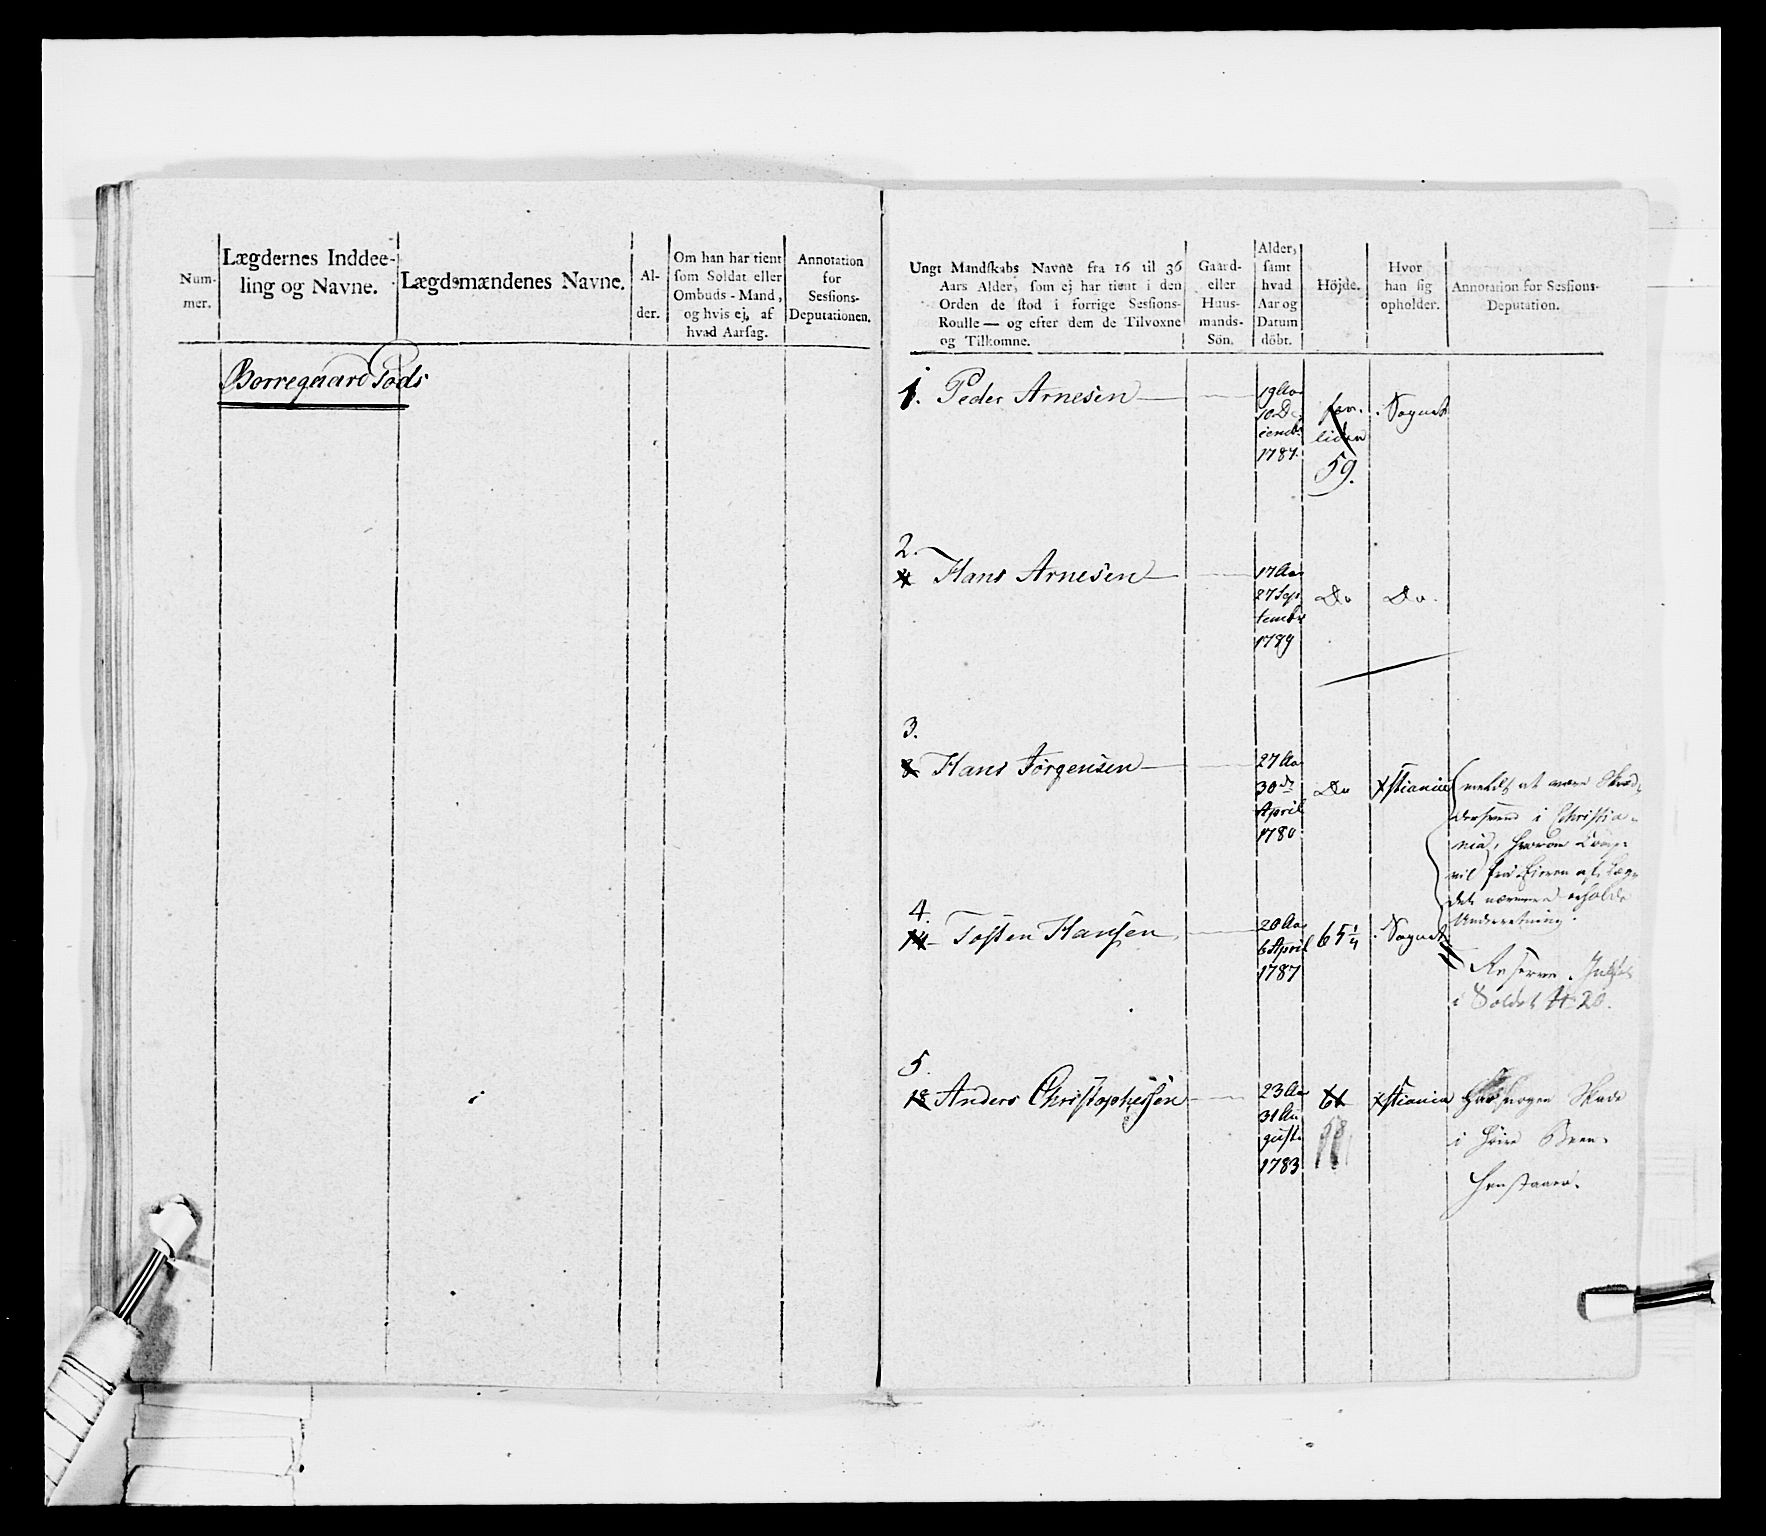 Num-
mer.
Lægdernes Inddee-
ling og Navne.
Lægdsmændenes Navne.
Al-
der.
Om han har tient
som Soldat eller
Ombuds-Mand,
og hvis ej, af
hvad Aarsag.
Annotation
for
Sessions-
Deputationen.
Borregaard Gods
Ungt Mandskabs Navne fra 16 til 36
Aars Alder, som ej har tient i den
Orden de stod i forrige Sessions-
Roulle — og efter dem de Tilvoxne
og Tilkomne.
Gaard-
eller
Huus-
mands-
Sön.
Alder,
samt
hvad
Aar og
Datum
döbt.
Höjde.
Hvor
han sig
opholder.
Annotation for Sessions-
Deputation.
1. Peder Arnesen
19 Aar
10 De-
cembr
1787.
for-
liden
59.
i Sognet
2.
4 Hans Arnesen
17 Aar
27 Sep
tembr
1789
Do
Do.
3.
8 Hans Jörgensen
27 Aar
30de
April
1780
Do
Xstiania
meldt at være Skræd-
dersvend i Christia-
nia, hvorom
Underretning.
4.
14 Tosten Hansen
20 Aar
6 April
1787
65 1/4
i Sognet
Reserve
i Soldat No 20.
5.
18 Anders Christophersen
23 Aar
31 Au
gust
1783
61
Xstiania
Har nogen Skade
i höire Been.